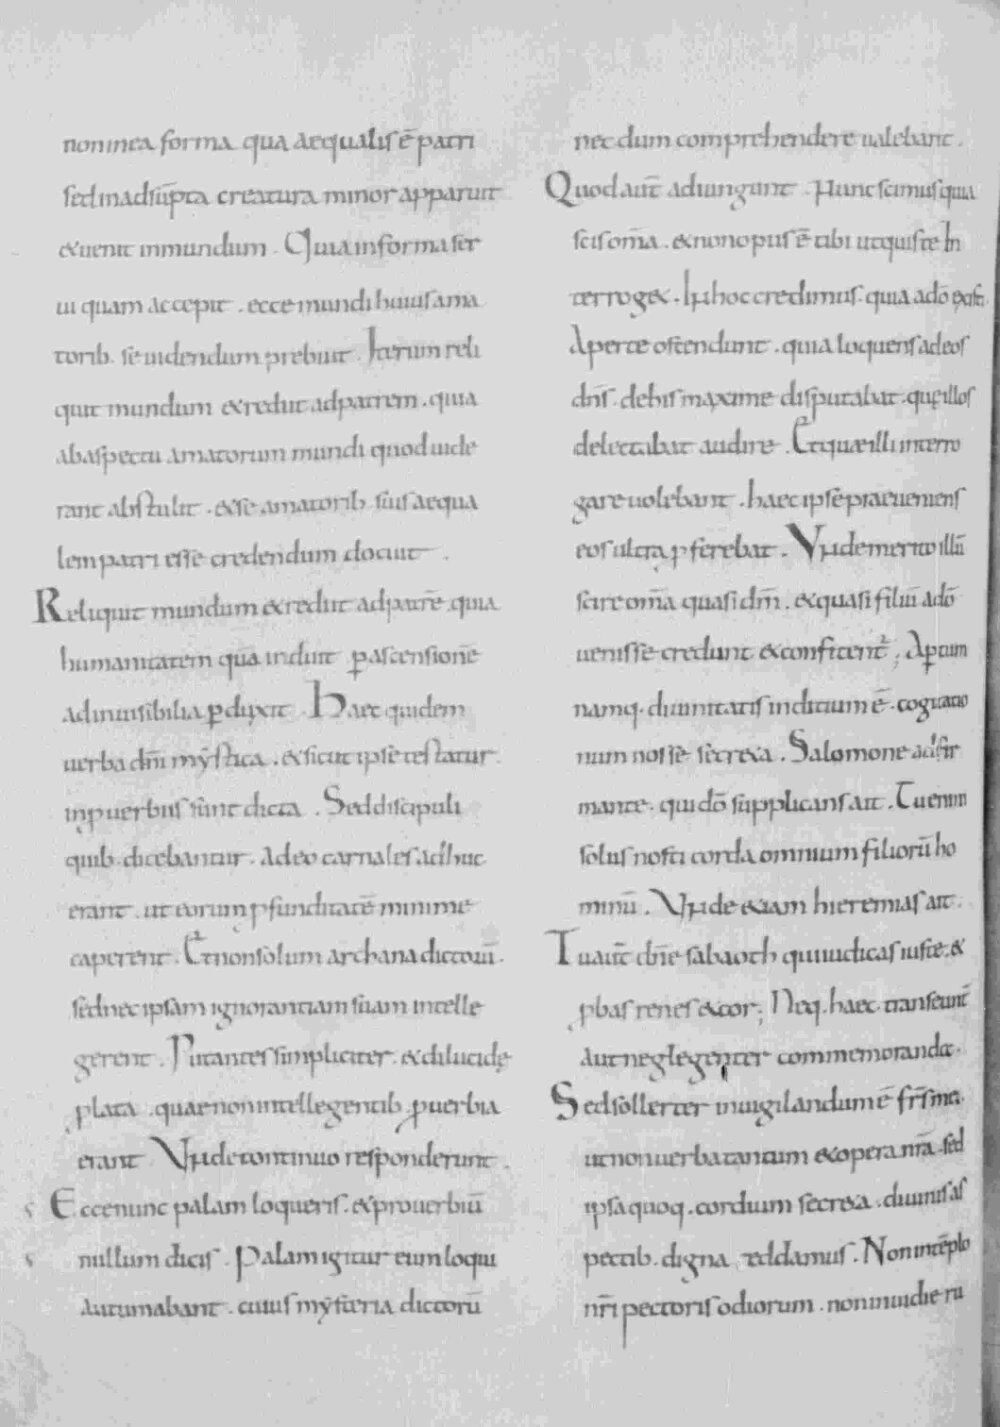 non in ea forma qua aequalis ē patri
sed in adsūpta creatura minor apparuit
& uenit in mundum . Quia in forma ser
ui quam accepit . ecce mundi huius ama
torib. se uidendum prebuit . Iterum reli
quit mundum & rediit ad patrem . quia
ab aspectu amatorum mundi quod uide
rant abstulit . & se amatorib. suis aequa
lem patri esse credendum docuit .
Reliquit mundum & rediit ad patrē quia
humanitatem quā induit p ascensionē
ad inuisibilia pduxit . Haec quidem
uerba dn̄i mystica . & sicut ipse testatur .
in puerbiis sunt dicta . Sed discipuli
quib. dicebantur . adeo carnales adhuc
erant . ut eorum pfunditatē minime
caperent . Et non solum archana dictorū .
sed nec ipsam ignorantiam suam intelle
gerent . Putantes simpliciter . & dilucidę
plata . quae non intellegentib. puerbia
erant Vnde continuo responderunt .
Ecce nunc palam loqueris . & prouerbiū
nullum dicis . Palam igitur eum loqui
autumabant . cuius mysteria dictorū
nec dum comprehendere ualebant .
Quod aut̄ adiungunt . Nunc scimus quia
scis om̄a . & non opus ē tibi ut quis te In
terrog& . In hoc credimus . quia a dō existi
Aperte ostendunt . quia loquens ad eos
dn̄s . de his maxime disputabat . quę illos
delectabat audire . Et quae illi interro
gare uolebant . haec ipse praeueniens
eos ultra pferebat . Vnde merito illū
scire om̄a quasi dm̄ . & quasi filiū a dō
uenisse credunt & confitent̄ ; Aptum
namq. diuinitatis indicium ē . cogitatio
num nosse secr&a . Salomone adfir
mante . qui dō supplicans ait . Tu enim
solus nosti corda omnium filiorū ho
minū . Vnde &iam hieremias ait .
Tu aut̄ dn̄e sabaoth qui iudicas iuste . &
pbas renes & cor ; Neq. haec transeunt̄
aut neglegenter commemoranda .
Sed sollerter inuigilandum ē frs̄ mei
ut non uerba tantum & opera nr̄a . sed
ipsa quoq. cordium secr&a . diuinis as
pectib. digna reddamus . Non intēplo
nr̄i pectoris odiorum . non inuidie ru